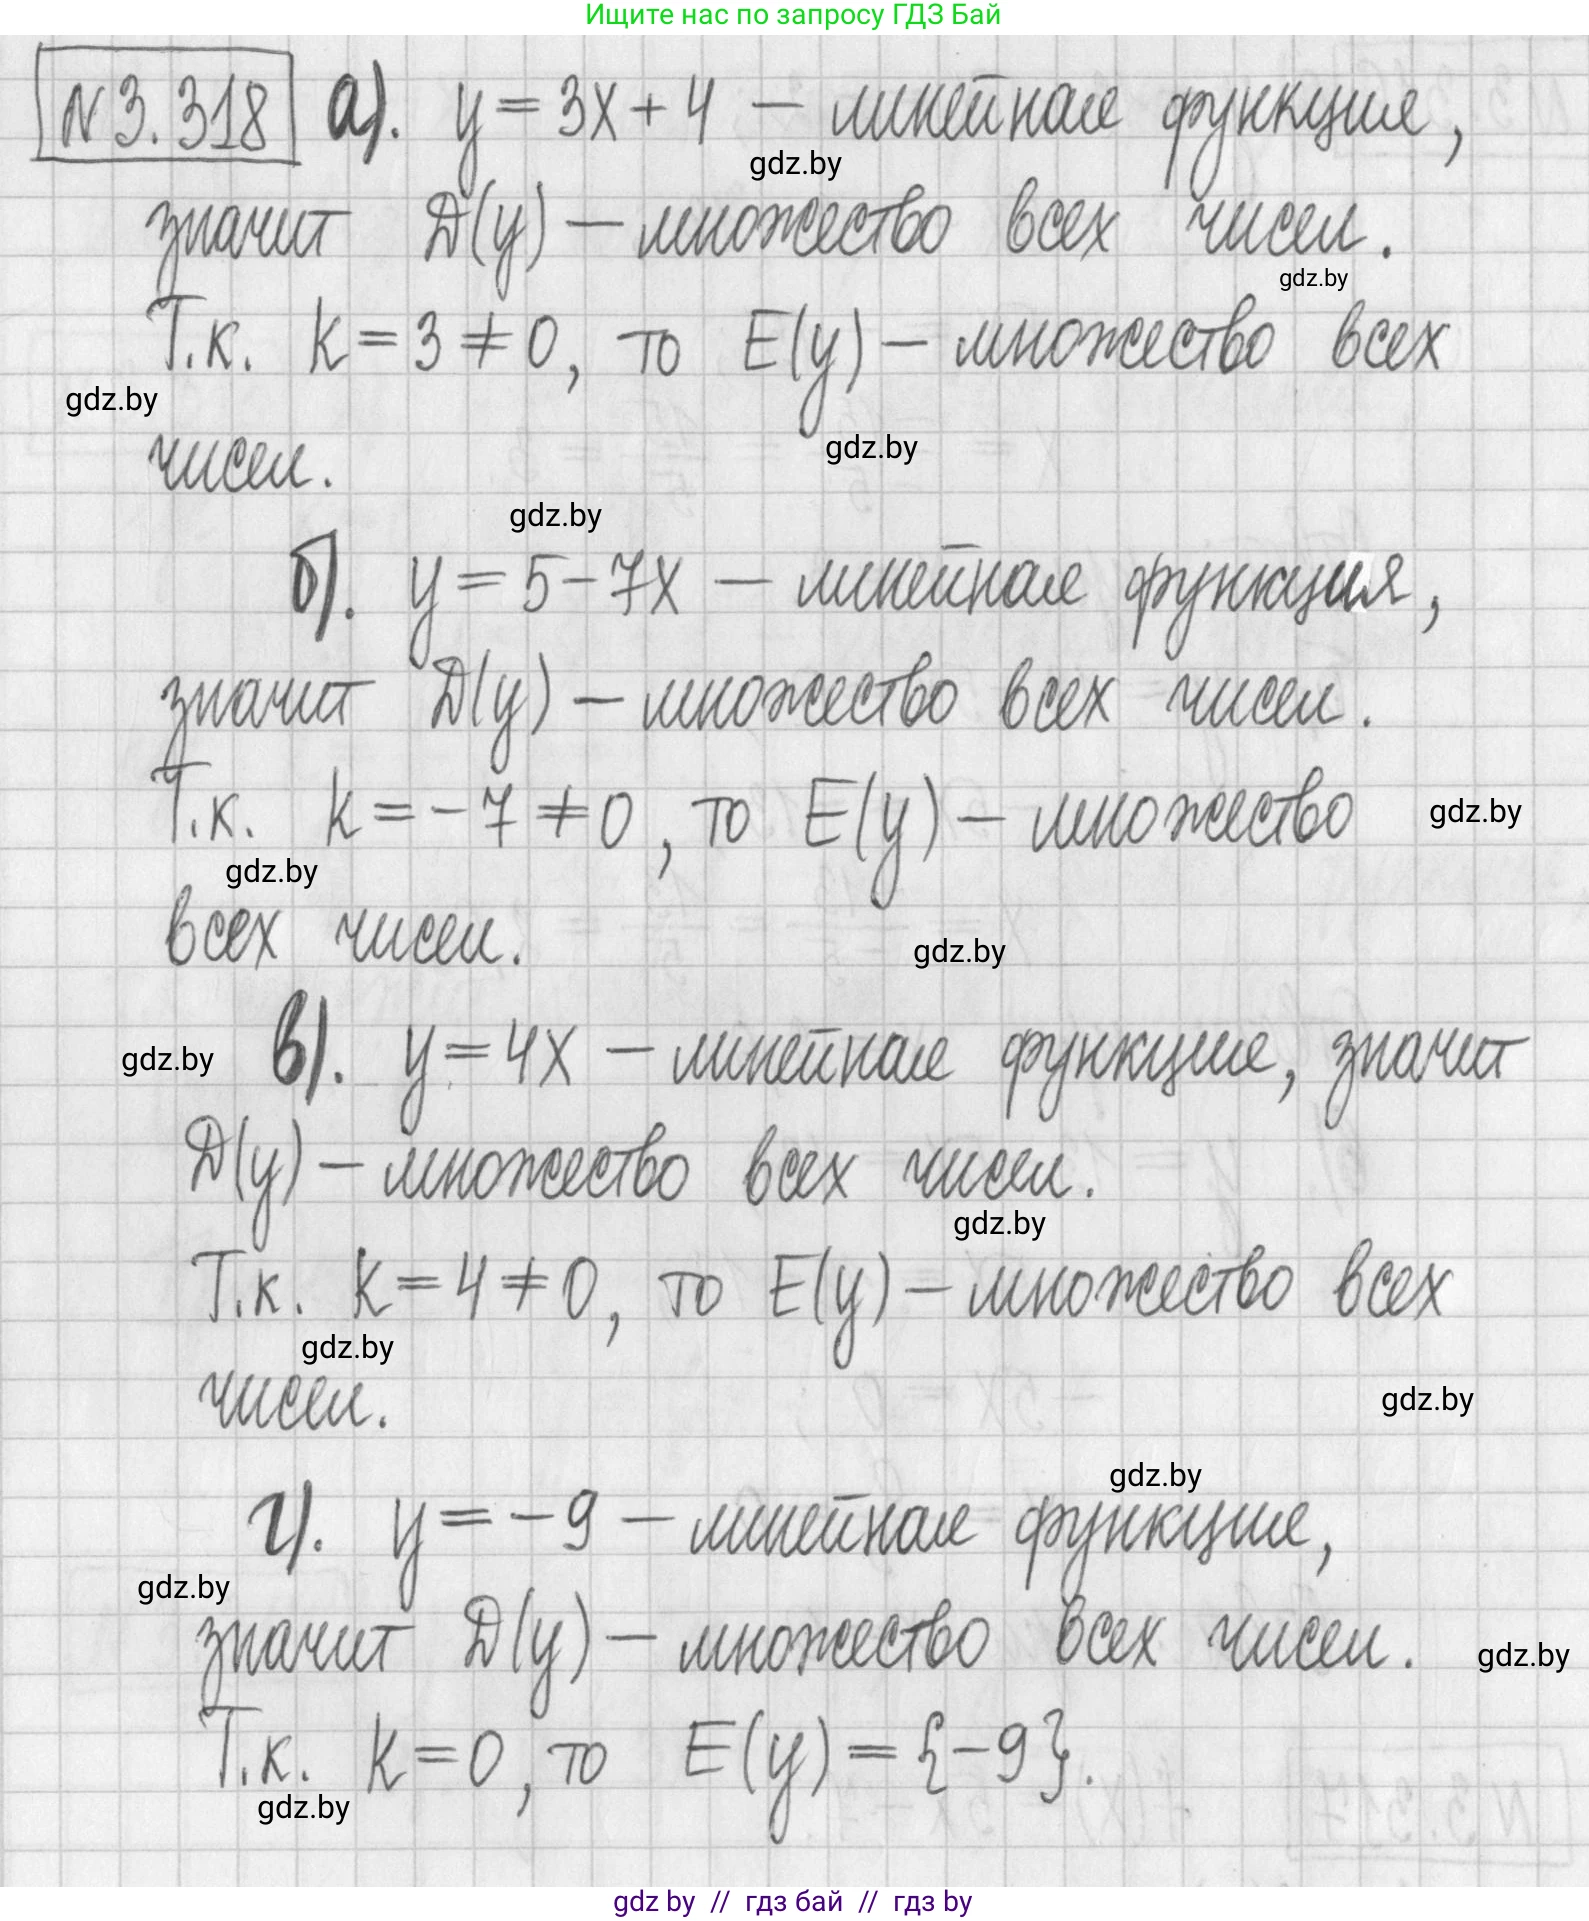 Ищите нас по запросу ГДЗ Бай
N3.318 а). y = 3x + 4 — линейная функция,
gdz.by
значит D(y) — множество всех чисел.
gdz.by
Т.к. k = 3 ≠ 0, то E(y) — множество всех
gdz.by
gdz.by
чисел.
gdz.by
б). y = 5 - 7x — линейная функция,
значит D(y) — множество всех чисел.
Т.к. k = -7 ≠ 0, то E(y) — множество
gdz.by
gdz.by
всех чисел.
gdz.by
gdz.by
в). y = 4x — линейная функция, значит
D(y) — множество всех чисел.
gdz.by
Т.к. k = 4 ≠ 0, то E(y) — множество всех
gdz.by
чисел.
gdz.by
gdz.by
г). y = -9 — линейная функция,
gdz.by
значит D(y) — множество всех чисел.
gdz.by
Т.к. k = 0, то E(y) = {-9}.
gdz.by
gdz by // гдз бай // гдз by